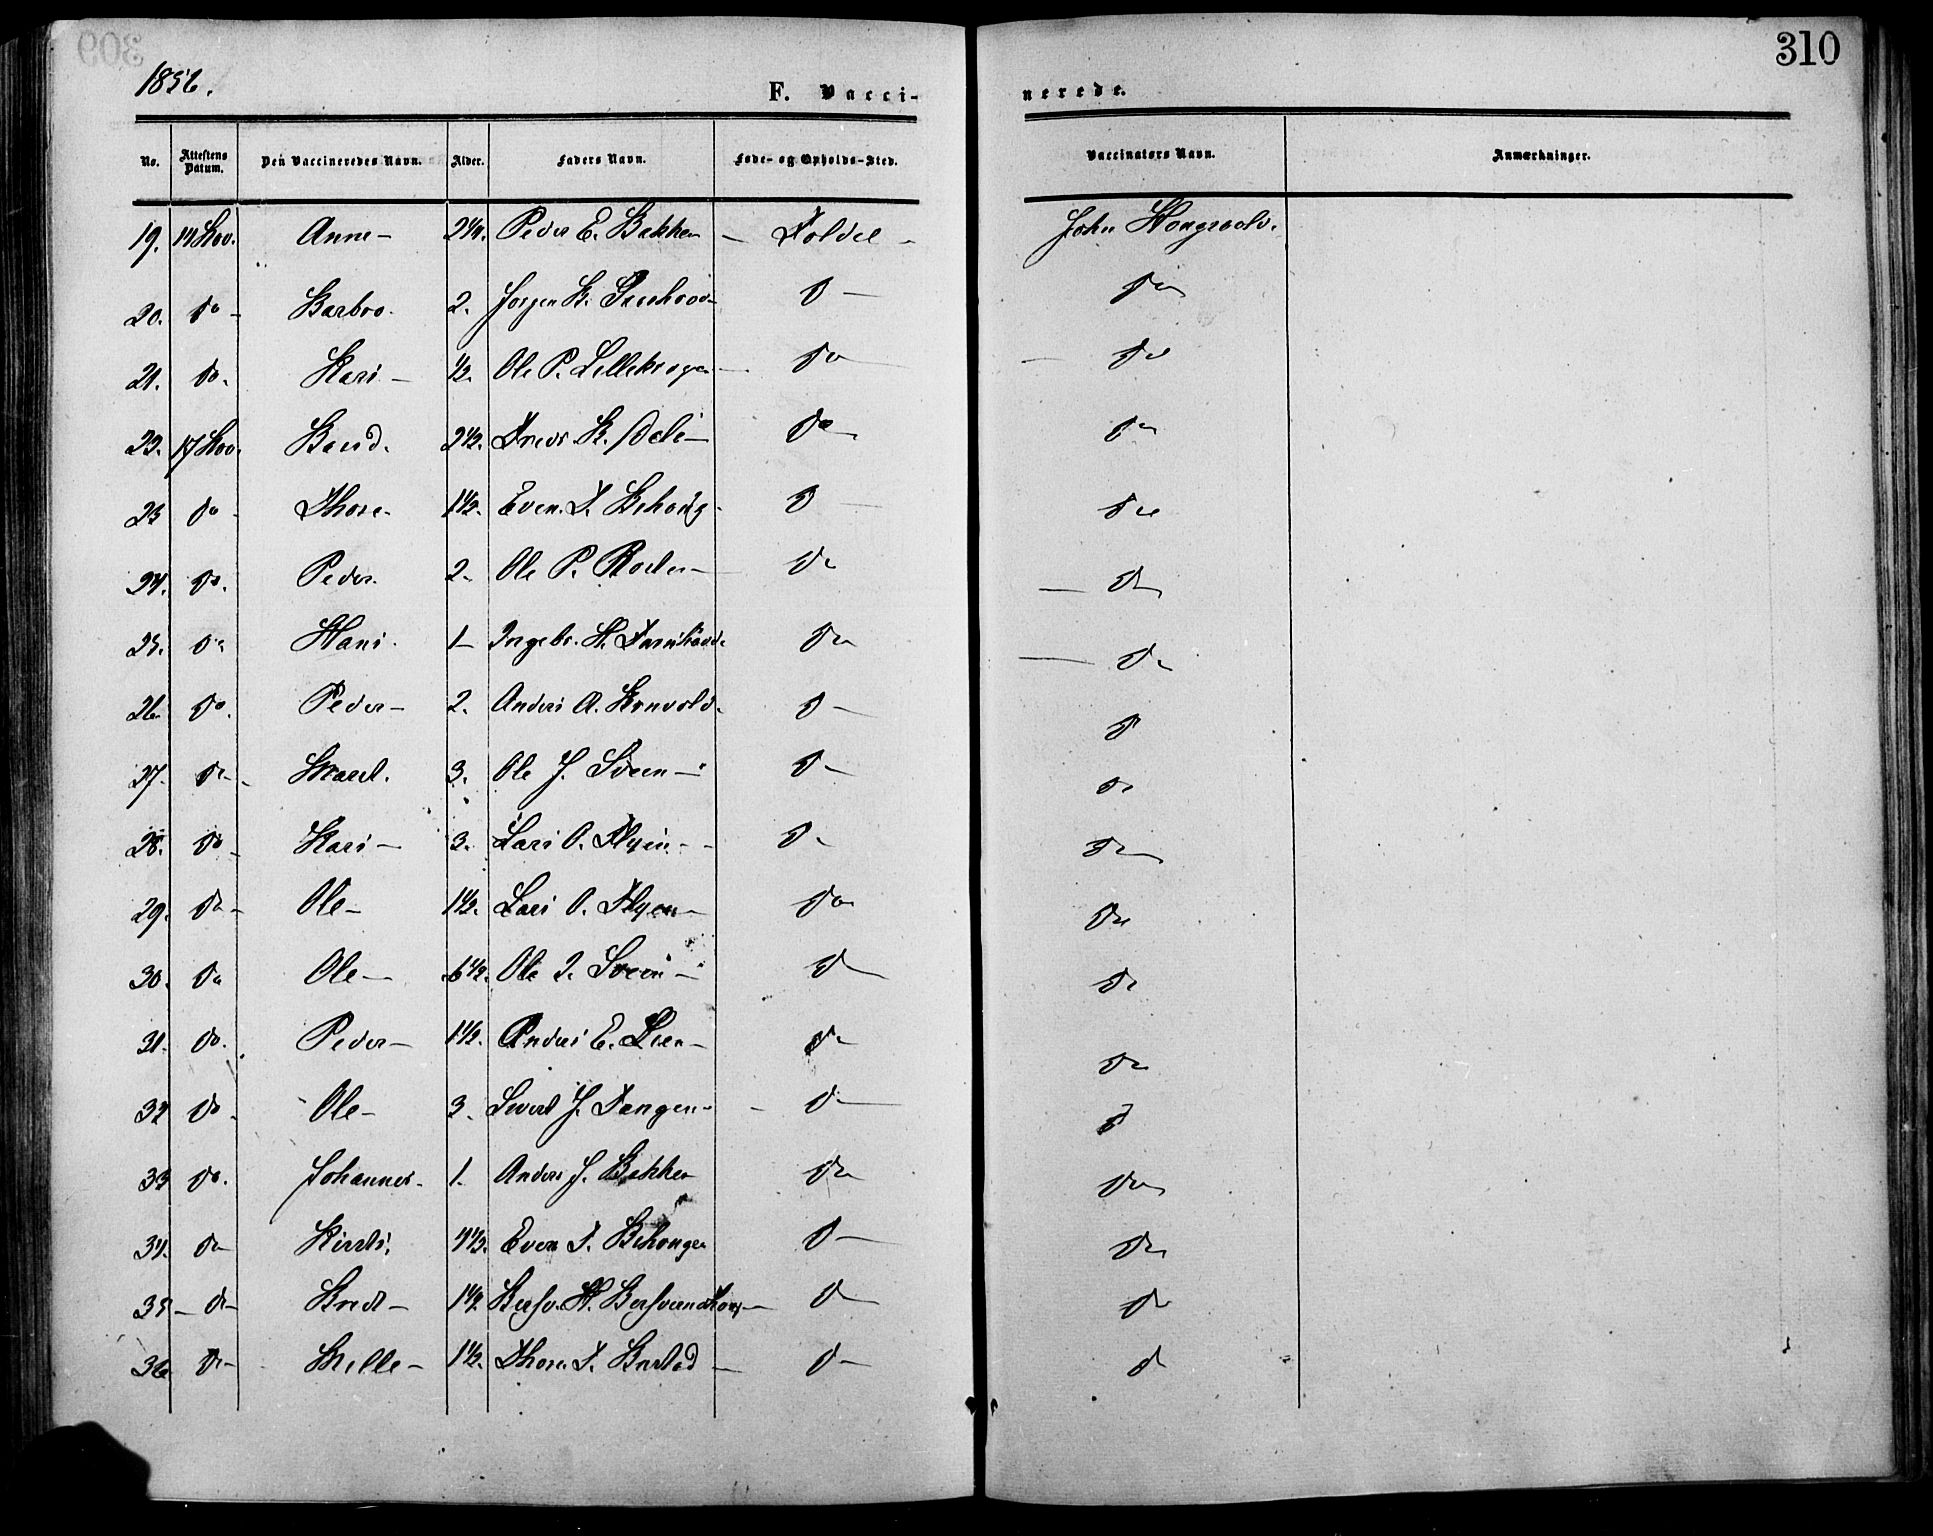 310
1856.
F. Vacci-nerede.
No. Attestens Datum. Den Vaccineredes Navn. Alder. Faders Navn. Føde- og Opholds-Sted. Vaccinators Navn. Anmærkninger.
19. 14 Nov. Anne - 2 1/2. Peder E. Bakken - Foldal - John
20. do - Barbro. 2. Jørgen K. D - do
21. do. Kari - 1/2. Ole P. Lillekrogen - do - do
22. 17 Nov. 2 1/2. K. do do
23 do - Thore - 1 1/2. Even T. D - do
24. do. Peder. 2. Ole P. - do - do
25. do Hans. 1 - Ingebr. H. do - do
26. do. Peder - 2. Anders A. Krokvold. D - D
27. do - Marit. 3. Ole J. Sveen - D - do
28. do - Kari - 3. Lars O. Flyen - do do
29. do - Ole - 1 1/2. Lars O. Flyen - do do
30. do Ole - 6 1/2. Ole J. Sveen - do do
31. do. Peder - 1 1/2. Anders E. Lien - do do
32 do - Ole - 3. Sivert J. Tangen - do - d
33 do. Johannes - 1. Anders J. Bakken do do
34. do Kirsti. 4 1/2. Even T. D - do
35 - do - Brit - 1 1/2. H. do do
36 do - Mille - 1 1/2. Thore T. - do - d